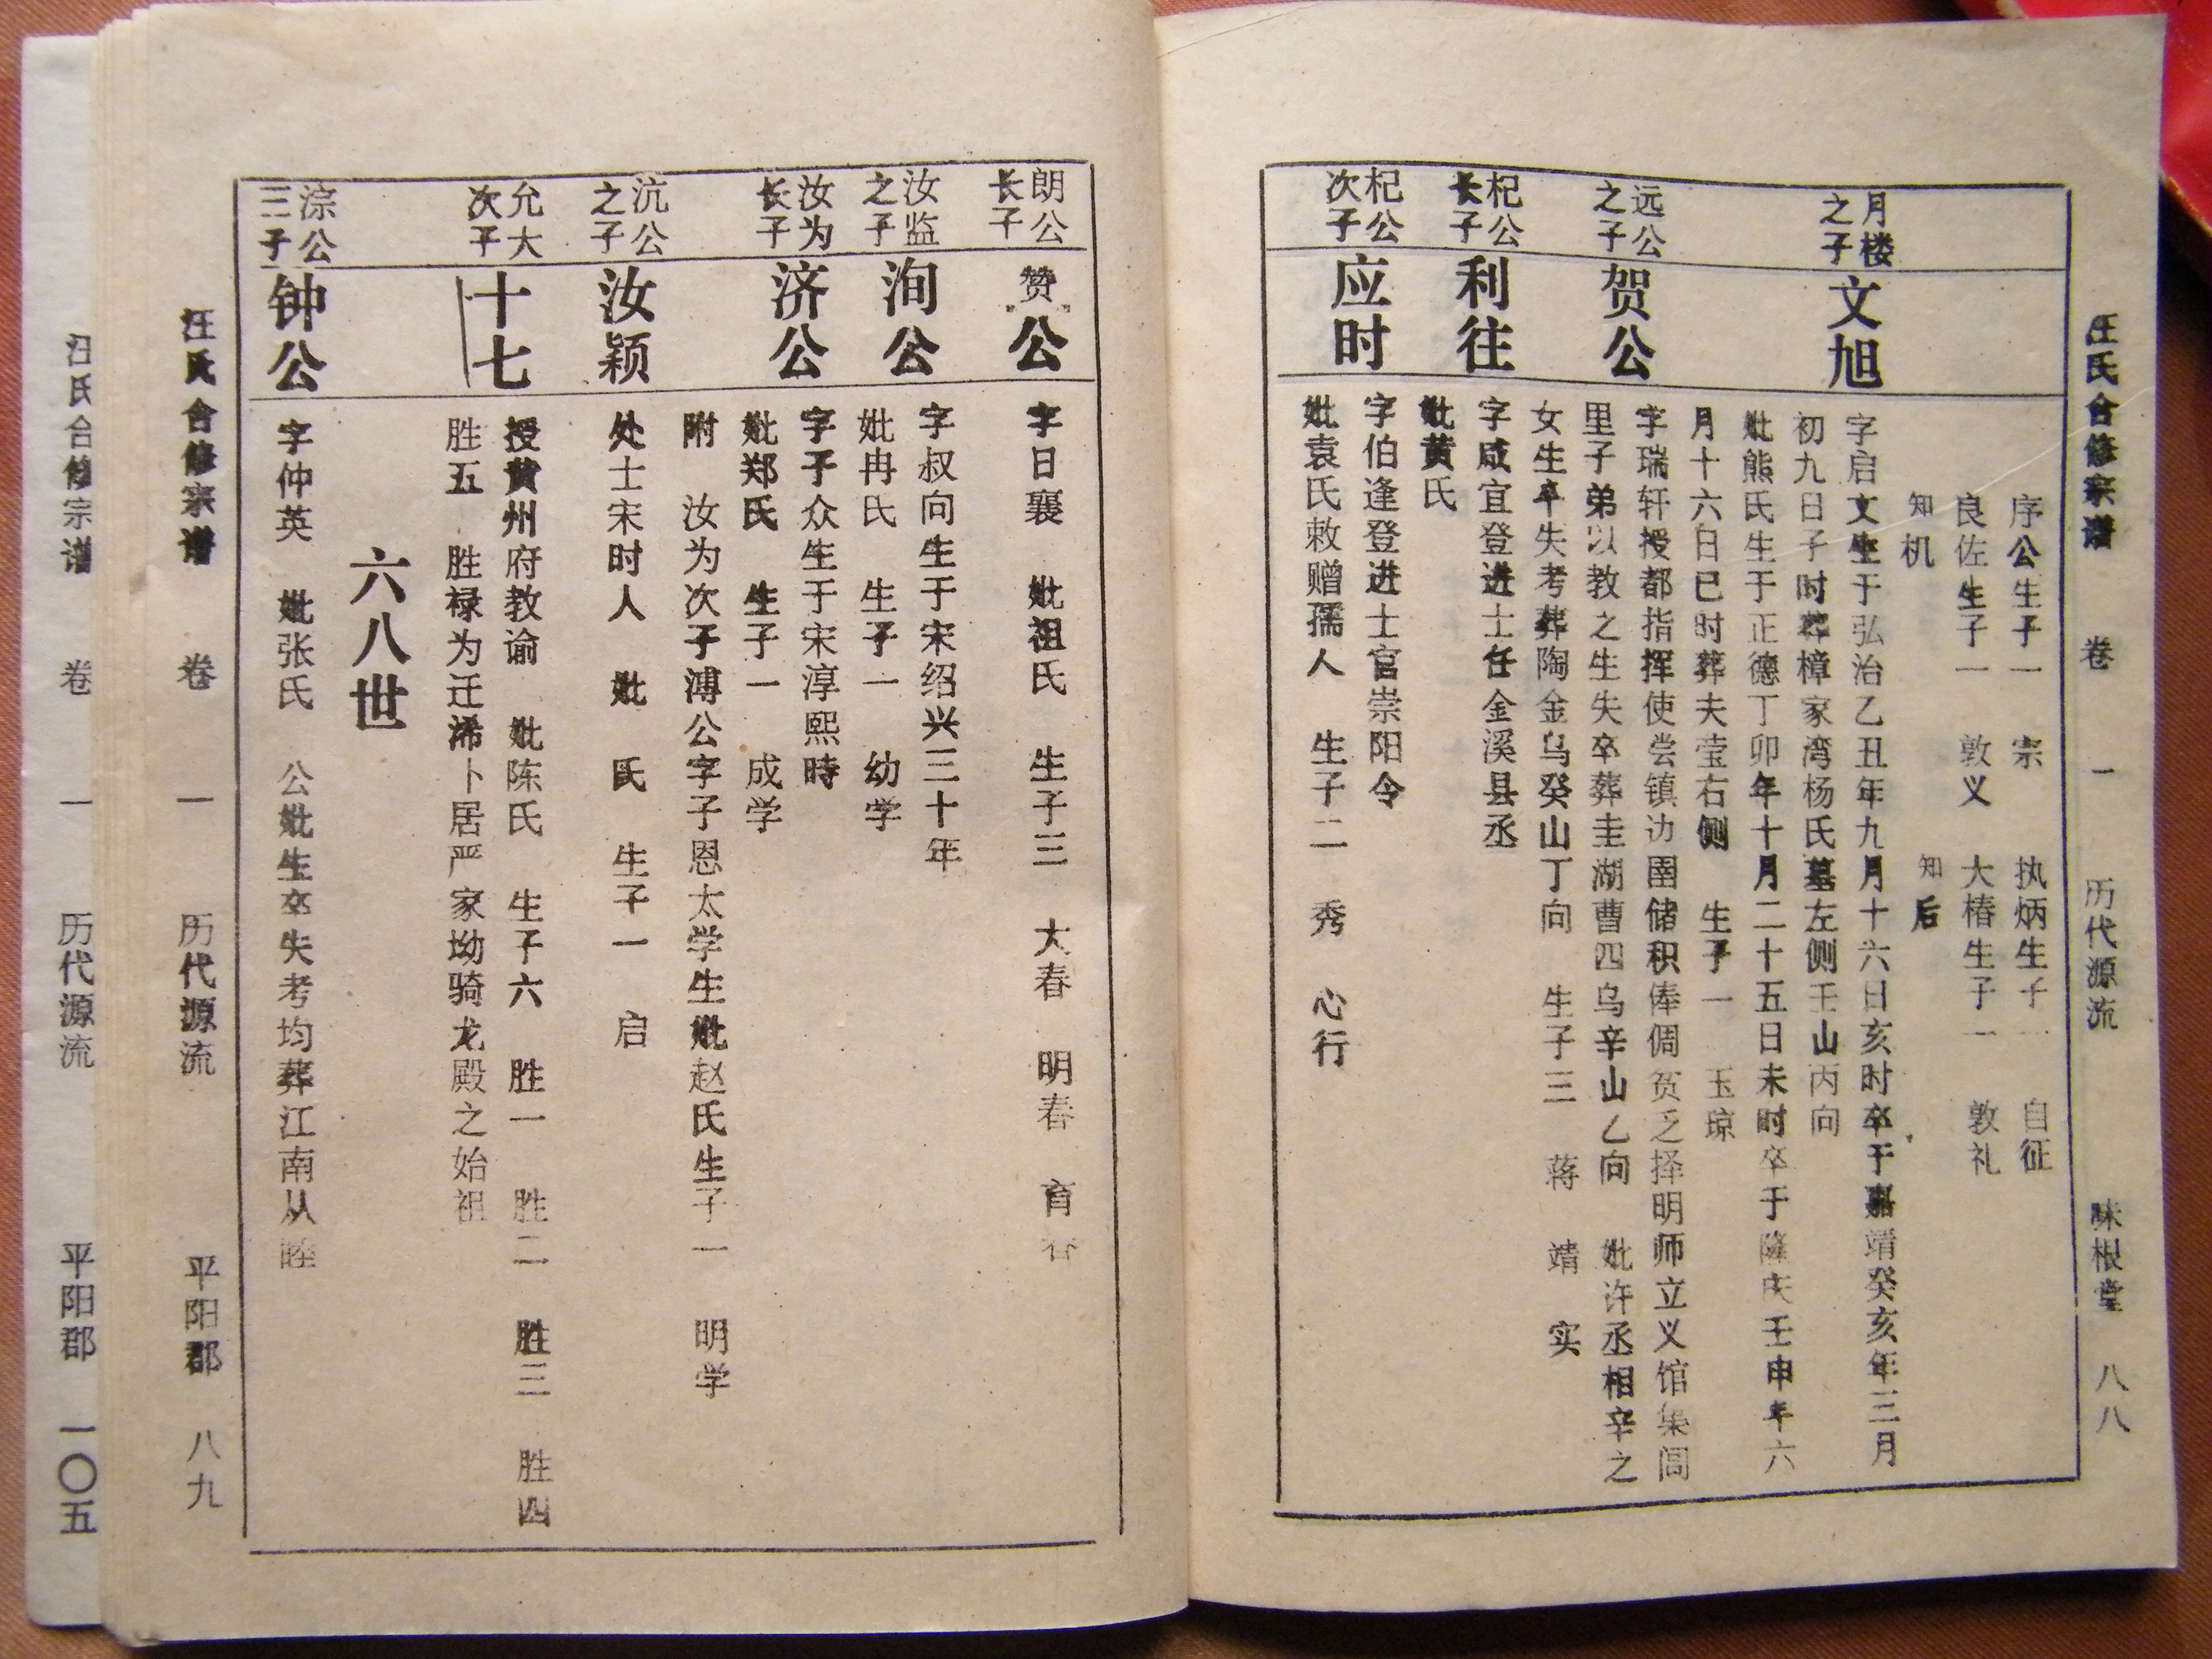 汪氏合修宗谱 卷一 历代源流 味根堂 八八
序公生子一 宗 执炳生子一 自征
良佐生子一 敦义 大椿生子一 敦礼
知机 知后
月楼
之子
文旭
字启文生于弘治乙丑年九月十六日亥时卒于嘉靖癸亥年三月
初九日子时葬樟家湾杨氏墓左侧壬山丙向
妣熊氏生于正德丁卯年十月二十五日未时卒于隆庆壬申年六
月十六日巳时葬夫莹右侧 生子一 玉琼
远公
之子
贺公
字瑞轩授都指挥使尝镇边圉储积俸倜贫乏择明师立义馆集闾
里子弟以教之生失卒葬圭湖曹四乌辛山乙向 妣许丞相辛之
女生卒失考葬陶金乌癸山丁向 生子三 蒋 靖 实
杞公
长子
利往
字咸宜登进士任金溪县丞
妣黄氏
杞公
次子
应时
字伯逢登进士官崇阳令
妣袁氏敕赠孺人 生子二 秀 心行
朗公
长子
赞公
字日襄 妣祖氏 生子三 大春 明春 育春
汝监
之子
洵公
字叔向生于宋绍兴三十年
妣冉氏 生子一 幼学
汝为
长子
济公
字子众生于宋淳熙時
妣郑氏 生子一 成学
附 汝为次子溥公字子恩太学生妣赵氏生子一 明学
沆公
之子
汝颖
处士宋时人 妣 氏 生子一 启
允大
次子
十七
授黄州府教谕 妣陈氏 生子六 胜一 胜二 胜三 胜四
胜五 胜禄为迁浠卜居严家坳骑龙殿之始祖
六八世
淙公
三子
钟公
字仲英 妣张氏 公妣生卒失考均葬江南从睦
汪氏合修宗谱 卷一 历代源流 平阳郡 八九
汪氏合修宗谱 卷一 历代源流 平阳郡 一〇五